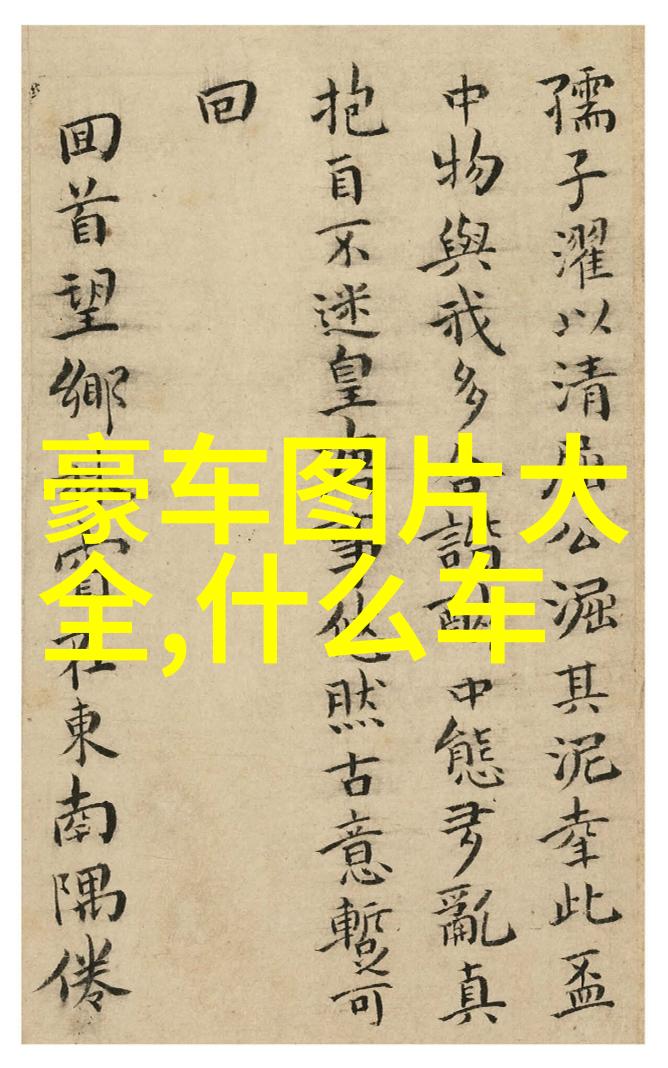 孺子濯以清屈公淈其泥此盃
中物與我多合諧酣中態多亂真
抱自不迷皇然古意暫可
回
囬首望鄉在東南隅倦
豪车图片大
全,什么车